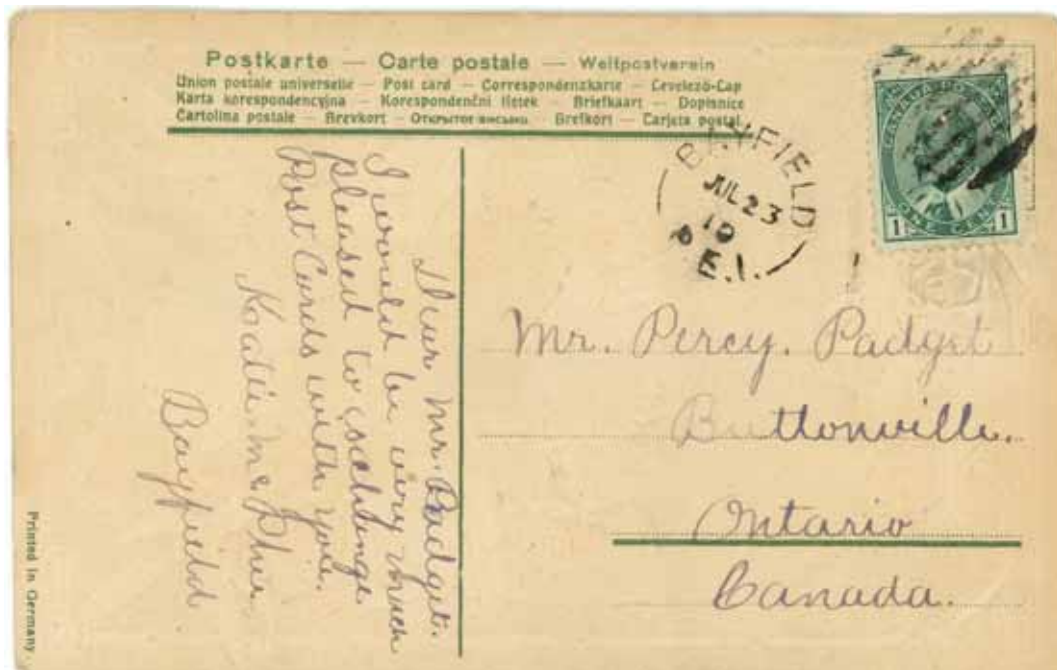 Postkarte — Carte postale — Weltpostverein
Union postale universelle — Post card — Correspondenzkarte — Levelező-Lap
Karta korespondencyjna — Korespondenční lístek — Briefkaart — Dopisnice
Cartolina postale — Brevkort — Открытое письмо — Brefkort — Carjeta postal
CANADA POSTAGE
1 ONE CENT 1
BAYFIELD
JUL 23
10
P.E.I.
Dear Mr. Padget.
I would be very much
pleased to exchange
Post Cards with you.
Katie McPhee
Bayfield
Mr. Percy. Padget
Buttonville.
Ontario
Canada.
Printed in Germany.